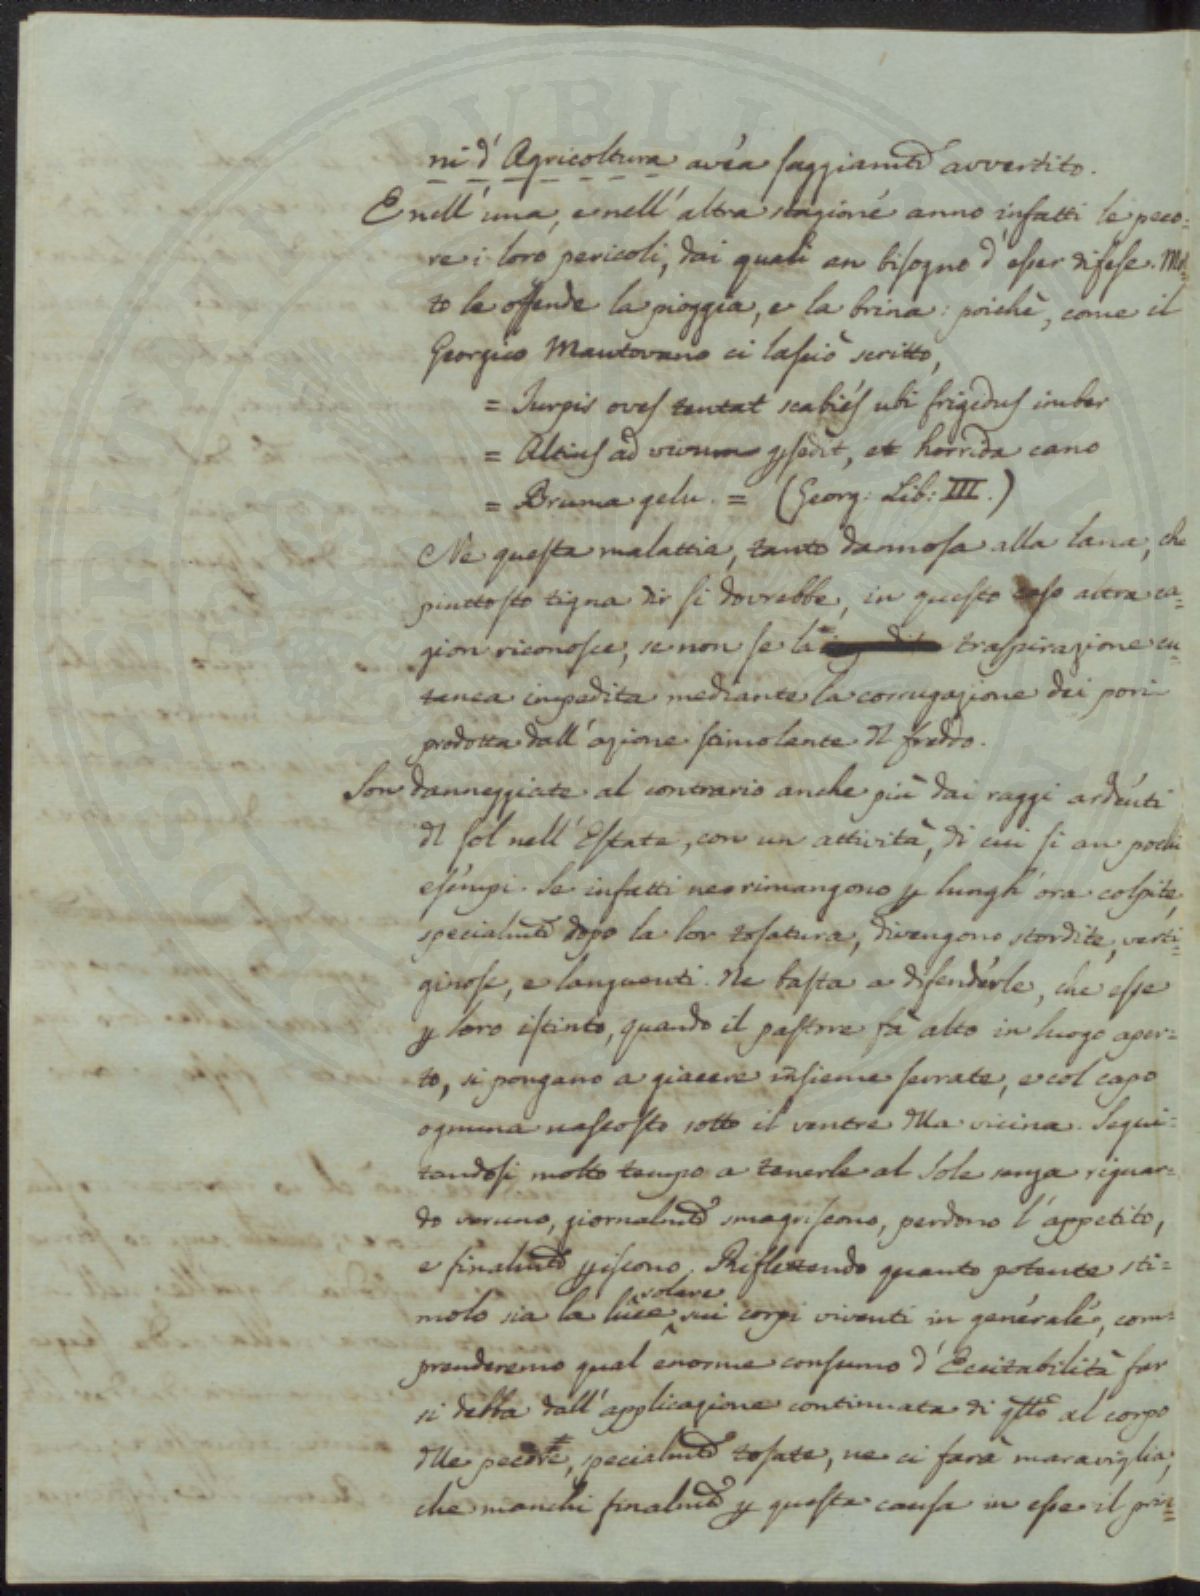 ni d'Agricoltura avéa saggiam.te avvertito.
E nell'una, e nell'altra stagione anno infatti le peco=
re i loro pericoli, dai quali an bisogno d'esser difese. Mol=
to le offende la pioggia, e la brina: poichè, come il
Georgico Mantovano ci lasciò scritto,
= Turpis oves tentat scabiés ubi frigidus imber
= Altius ad vivum psedit, et horrida cano
= Bruma gelu. = (Georg: Lib: III.)
Ne questa malattia, tanto dannosa alla lana, che
piuttosto tigna dir si dovrebbe, in questo caso altra ca=
gion riconosce, se non se la traspirazione cu=
tanea impedita mediante la corrugazione dei pori
prodotta dall'azione stimolante dl freddo.
Son danneggiate al contrario anche più dai raggi ardénti
dl sol nell'Estate, con un attività, di cui si an pochi
esémpi. Se infatti ne rimangono p lungh'ora colpite,
specialm.te dopo la lor tosatura, divengono stordite, verti=
ginose, e languenti. Ne basta a difenderle, che esse
p loro istinto, quando il pastore fà alto in luogo aper=
to, si pongano a giacere insieme serrate, e col capo
ognuna nascosto sotto il ventre dlla vicina. Segui=
tandosi molto tempo a tenerle al Sole senza riguar=
do veruno, giornalm.te smagriscono, perdono l'appetito,
e finalm.te piscono. Riflettendo quanto potente sti=
molo sia la luce solare sui corpi viventi in générale, com=
prenderemo qual enorme consumo d'Eccitabilità far
si debba dall'applicazione continuata di qsto al corpo
dlle pecore, specialm.te tosate, ne ci farà maraviglia,
che manchi finalm.te p questa causa in esse il prin=